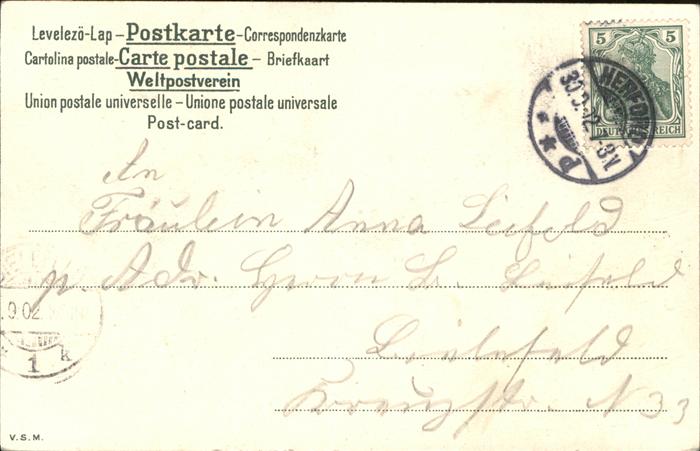 Levelezö-Lap – Postkarte – Correspondenzkarte
Cartolina postale – Carte postale – Briefkaart
Weltpostverein
Union postale universelle – Unione postale universale
Post-card.
5 5
DEUTSCHES REICH
HERFORD
30.9.02. 7-8V.
P * *
An
Fräulein Anna Siefeld
p. Adr. Herrn L. Siefeld
Bielefeld
Kreuzstr. N 33
.9.02.
1 k
V.S.M.